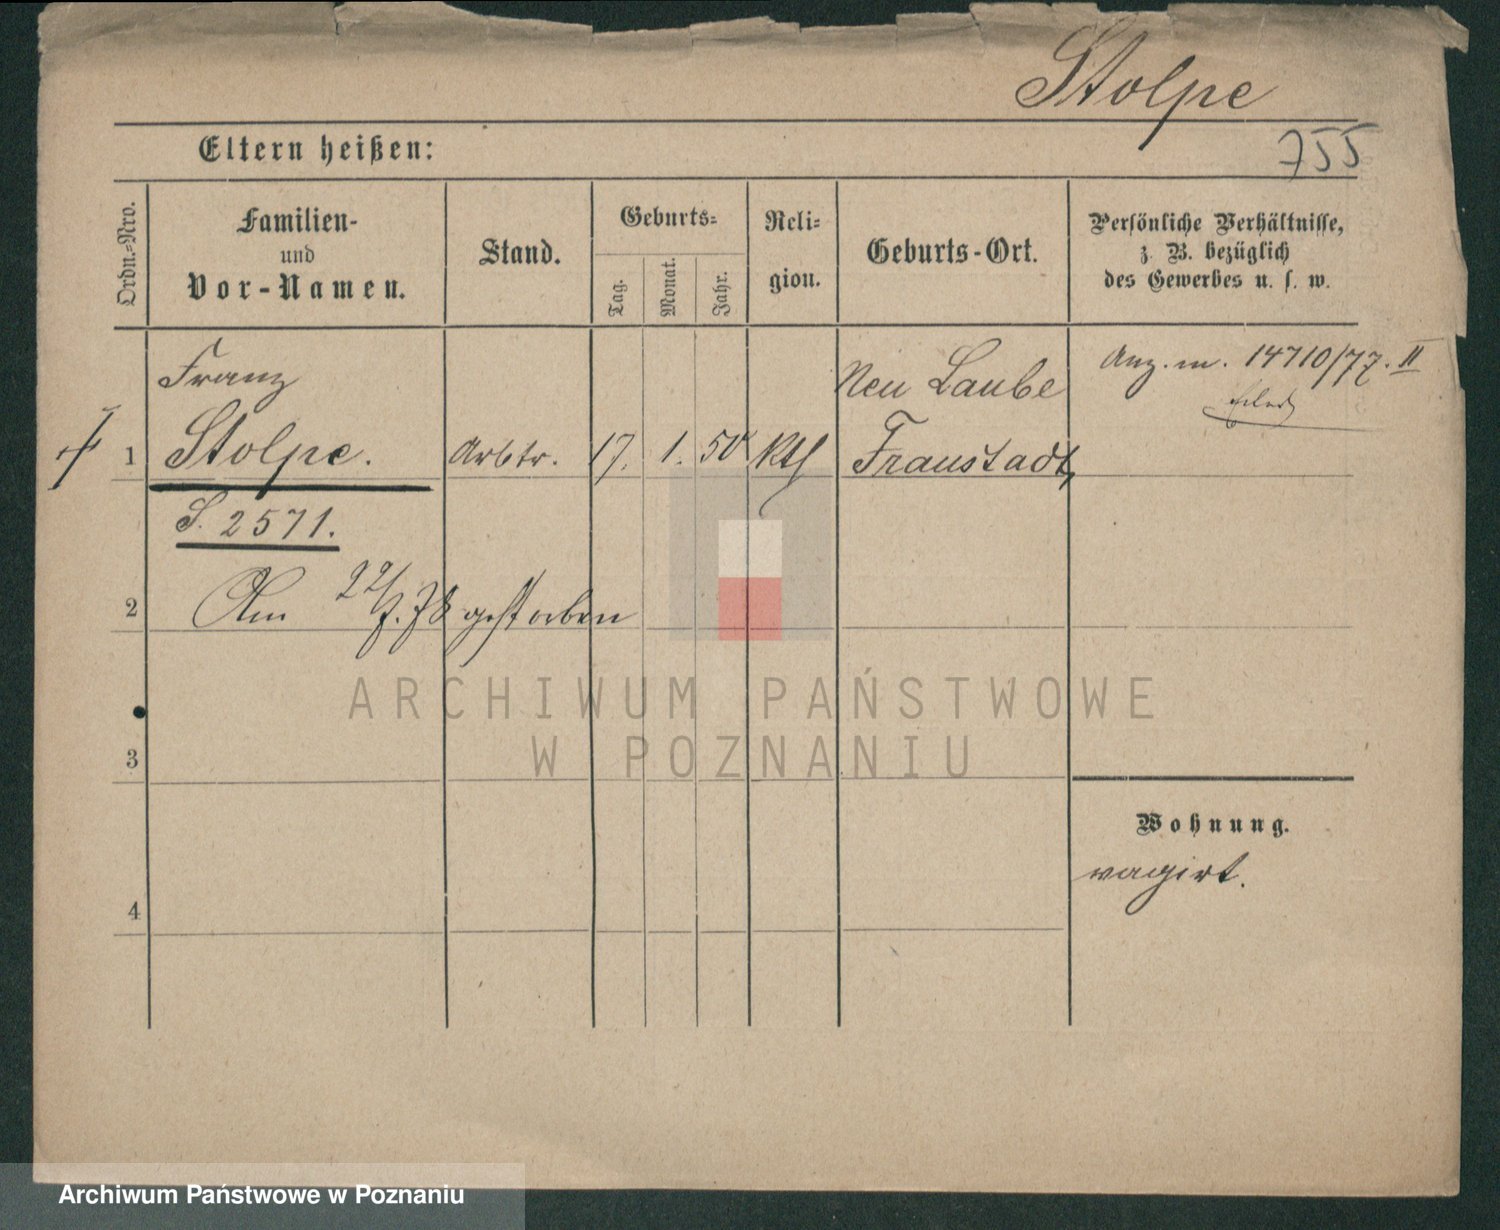 Stolpe
755
Eltern heißen:
Ordn.-Nro.
Familien-
und
Vor-Namen.
Stand.
Geburts-
Tag.
Monat.
Jahr.
Reli-
gion.
Geburts-Ort.
Persönliche Verhältnisse,
z. B. bezüglich
des Gewerbes u. s. w.
Franz
Neu Laube
Anz. m. 14710/77. II
1 Stolpe. Arbtr. 17. 1. 50 kth Fraustadt,
S. 2571.
2 Am 22/7.78 gestorben
ARCHIWUM PAŃSTWOWE
W POZNANIU
3
Wohnung.
vagirt.
4
Archiwum Państwowe w Poznaniu